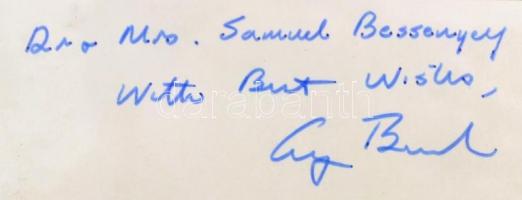 Dr & Mrs. Samuel Bessenyey
With Best Wishes,
darabanth
Bush